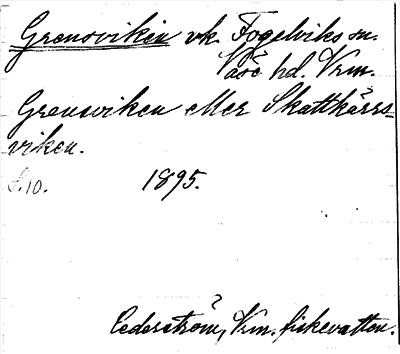 Grensviken vk. Fogelviks sn.
Väse hd. Vrm.
Grensviken eller Skattkärrs-
viken.
S. 10. 1895.
Cederström, Vrm. fiskevatten.